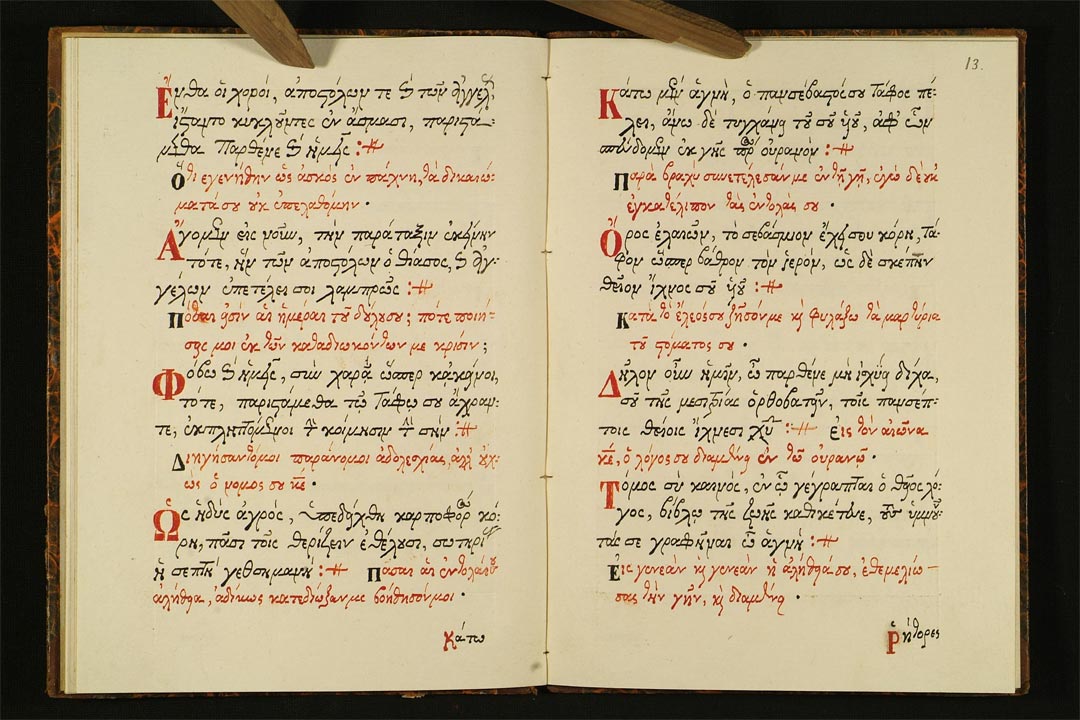 Ἔνθα οἱ χοροί, ἀποστόλων τε καὶ τῶν ἀγγέλ,
ἵσταντο κυκλοῦντες ἐν ᾄσμασι, παριστά-
μεθα Παρθένε καὶ ἡμεῖς :
Ὅτι εγενήθην ὡς ἀσκὸς ἐν πάχνῃ, τὰ δικαιώ-
ματά σου οὐκ ἐπελαθόμην .
Ἄγομεν εἰς νοῦν, τὴν παράταξιν ἐκείνην
τότε, ἣν τῶν ἀποστόλων ὁ θίασος, καὶ ἀγ-
γέλων ἐπετέλει σοι λαμπρῶς :
Πόσαι εἰσὶν αἱ ἡμέραι τοῦ δούλου σου; πότε ποιή-
σῃς μοι ἐκ τῶν καταδιωκόντων με κρίσιν ;
Φόβῳ καὶ ἡμεῖς, σὺν χαρᾷ ὥσπερ κᾀκεῖνοι,
τότε, παριστάμεθα τῷ Τάφῳ σου ἄχραν-
τε, ἐκπληττόμενοι τὴν κοίμησιν τὴν σήν :
Διηγήσαντό μοι παράνομοι ἀδολεσχίας, ἀλλ' οὐχ
ὡς ὁ νόμος σου Κε .
Ὡς ἡδὺς ἀγρός, ὑπεδείχθη καρποφόρ κό-
ρη, πᾶσι τοῖς θερίζειν ἐθέλουσι, σωτηρί
ἡ σεπτὴ γεθσημανῆ : Πᾶσαι αἱ ἐντολαί σου
ἀλήθεια, ἀδίκως κατεδίωξάν με βοήθησόν μοι .
Κάτω
13.
Κάτω μὲν ἁγνή, ὁ πανσέβαστός σου Τάφος πέ-
λει, ἄνω δὲ τυγχάνει τοῦ σοῦ υἱοῦ, ἀφ' ὧν
σπεύδομεν ἐκ γῆς πρὸς οὐρανόν :
Παρὰ βραχὺ συνετέλεσάν με ἐν τῇ γῇ, ἐγὼ δὲ οὐκ
ἐγκατέλιπον τὰς ἐντολάς σου .
Ὄρος ἐλαιῶν, τὸ σεβάσμιον ἔχει σου κόρη, Τά-
φον ὥσπερ βάθρον τὸν ἱερόν, ὡς δὲ σκέπην
θεῖον ἴχνος σοῦ υἱοῦ :
Κατὰ τὸ ἔλεός σου ζῆσόν με καὶ φυλάξω τὰ μαρτύρια
τοῦ στόματός σου .
Δῆλον οὖν ἡμῖν, ὦ παρθένε μὴ ἰσχύειν δίχα,
σοῦ τῆς μεσιτείας ὀρθοβατεῖν, τοῖς πανσεπ-
τοις θείοις ἴχνεσι Χυ : Εἰς τὸν αἰῶνα
Κε, ὁ λόγος σου διαμένει ἐν τῷ οὐρανῷ .
Τόμος σὺ καινός, ἐν ᾧ γέγραπται ὁ θεῖος λό-
γος, βίβλῳ τῆς ζωῆς καθικέτευε, τοὺς ὑμνοῦν-
τάς σε γραφῆναι ὦ ἁγνή :
Εἰς γενεὰν καὶ γενεὰν ἡ ἀλήθειά σου, ἐθεμελίω-
σας τὴν γῆν, καὶ διαμένει .
Ῥήτορες